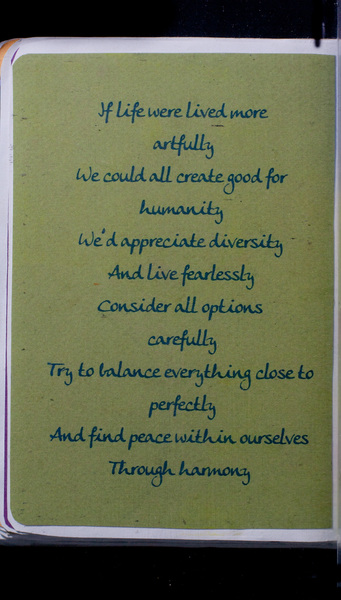 If life were lived more
artfully
We could all create good for
humanity
We'd appreciate diversity
And live fearlessly
Consider all options
carefully
Try to balance everything close to
perfectly
And find peace within ourselves
Through harmony